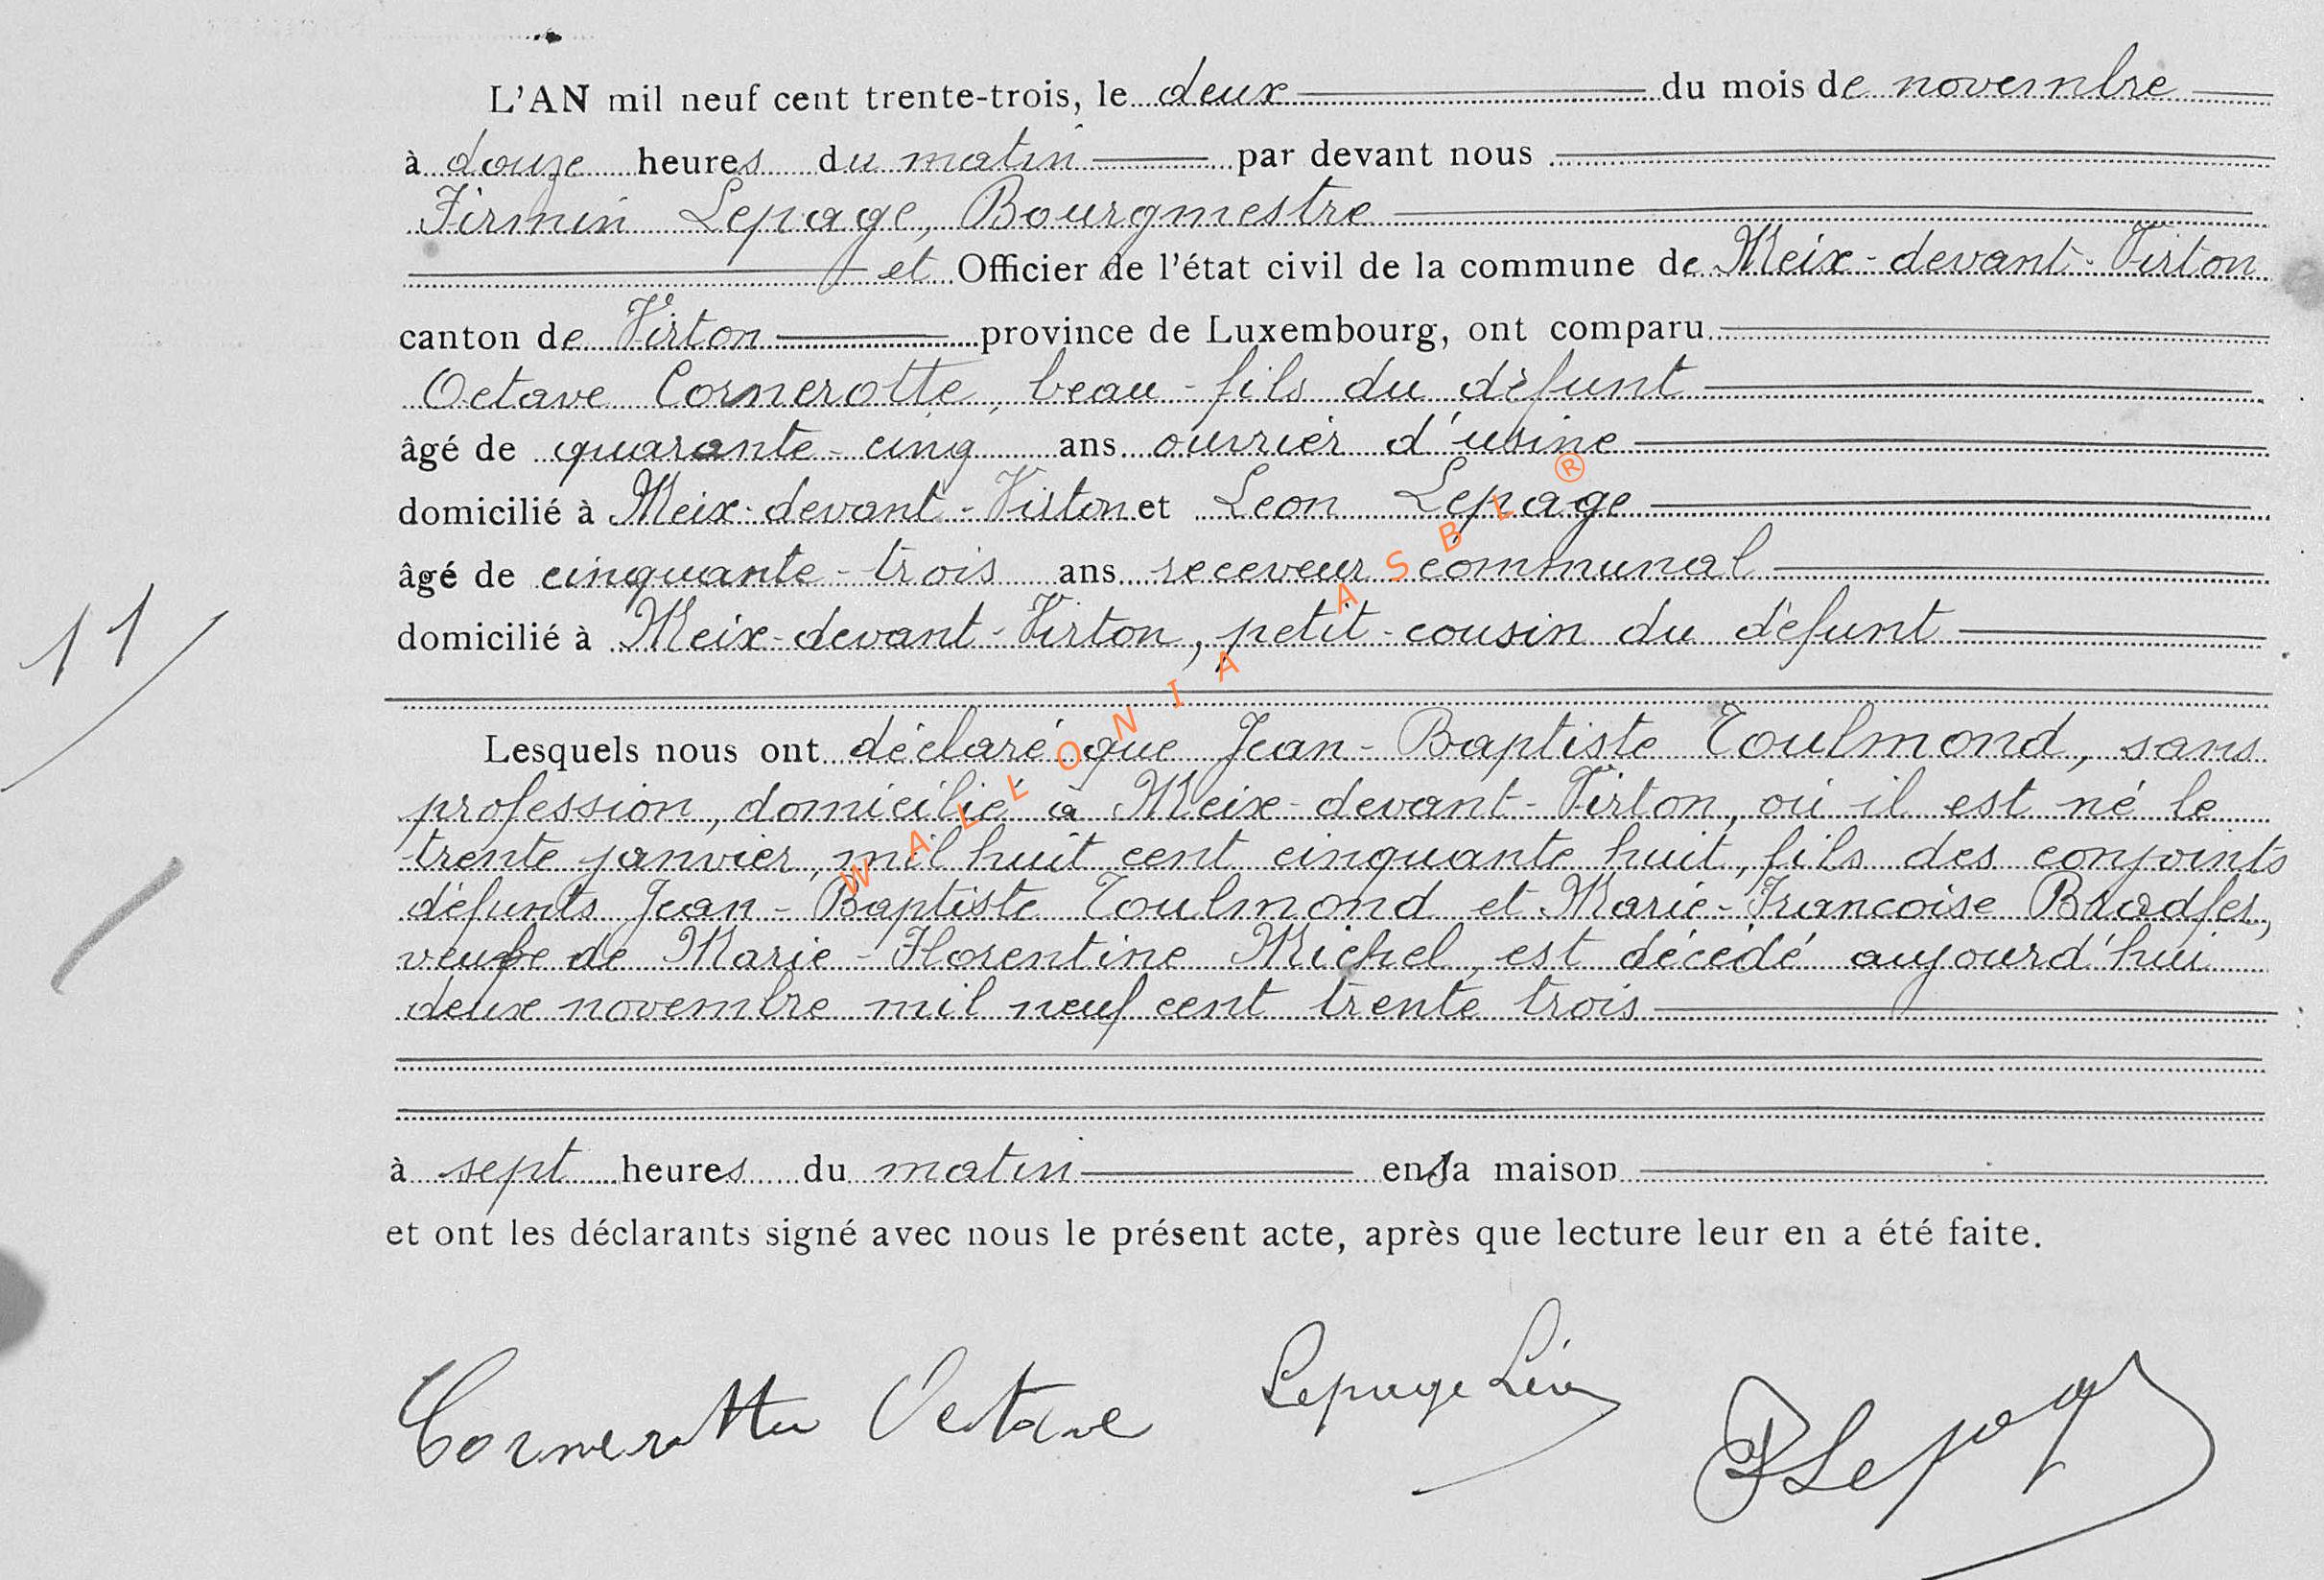 L'AN mil neuf cent trente-trois, le deux du mois de novembre
à douze heures du matin par devant nous
Firmin Lepage, Bourgmestre
et Officier de l'état civil de la commune de Meix-devant-Virton
canton de Virton province de Luxembourg, ont comparu
Octave Cornerotte, beau-fils du défunt
âgé de quarante-cinq ans ouvrier d'usine
domicilié à Meix-devant-Virton et Leon Lepage
âgé de cinquante-trois ans receveur communal
domicilié à Meix-devant-Virton, petit-cousin du défunt
11
Lesquels nous ont déclaré que Jean-Baptiste Toulmond, sans
profession, domicilié à Meix-devant-Virton, où il est né le
trente janvier, mil huit cent cinquante huit, fils des conjoints
défunts Jean-Baptiste Toulmond et Marie-Francoise Bradfer,
veuf de Marie-Florentine Michel, est décédé aujourd'hui
deux novembre mil neuf cent trente trois
à sept heures du matin en sa maison
et ont les déclarants signé avec nous le présent acte, après que lecture leur en a été faite.
Cornerotte Octave Lepage Léon FLepage
WALLONIA ASBL ®